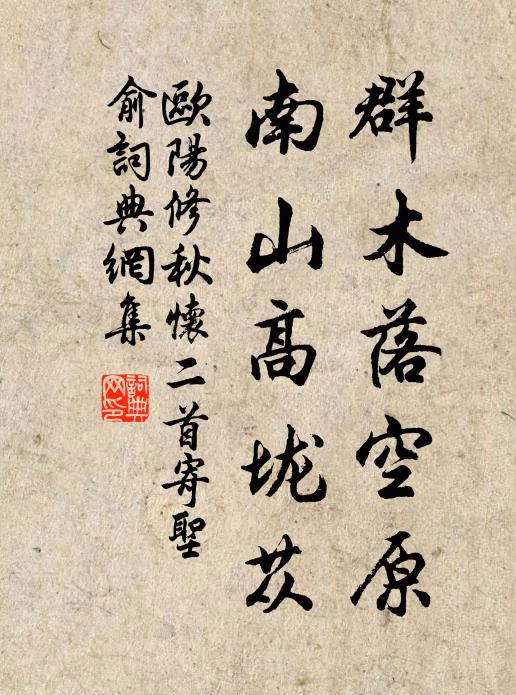 群木落空原
南山高垅苁
歐陽修秋懷二首寄聖
俞詞典網集
詞典网印